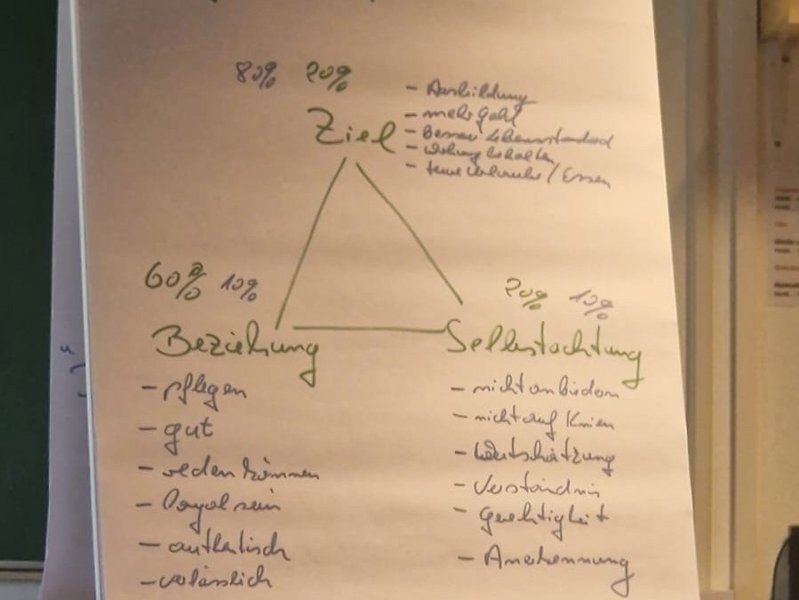 80% 20%
Ziel
- Ausbildung
- mehr Gehalt
- besserer Lebensstandard
- Wohnung behalten
- teure Urlaube / Essen
60% 10%
20% 10%
Beziehung
Selbstachtung
- pflegen
- gut
- reden können
- loyal sein
- authentisch
- verlässlich
- nicht anbiedern
- nicht auf Knien
- Wertschätzung
- Verständnis
- Gerechtigkeit
- Anerkennung